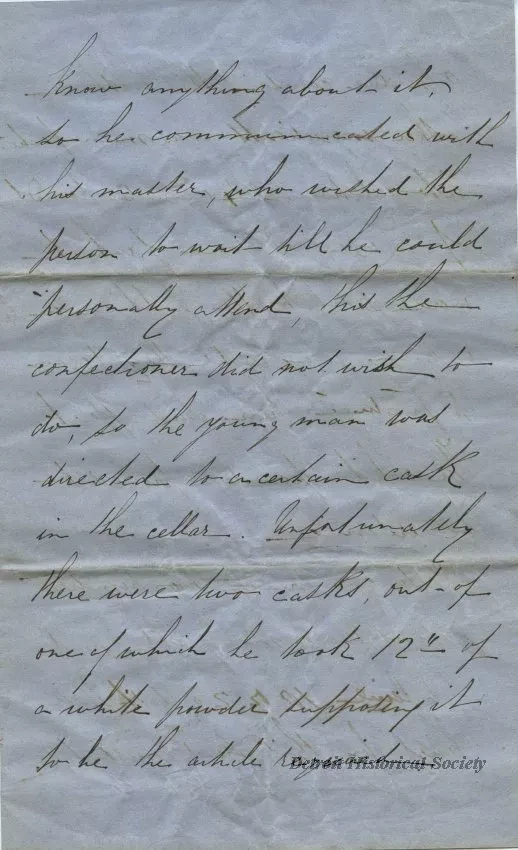 know anything about it,
so he communicated with
his master, who wished the
person to wait till he could
personally attend, this the
confectioner did not wish to
do, so the young man was
directed to a certain cask
in the cellar. Unfortunately
there were two casks, out of
one of which he took 12" of
a white powder supposing it
to be the article required
Detroit Historical Society